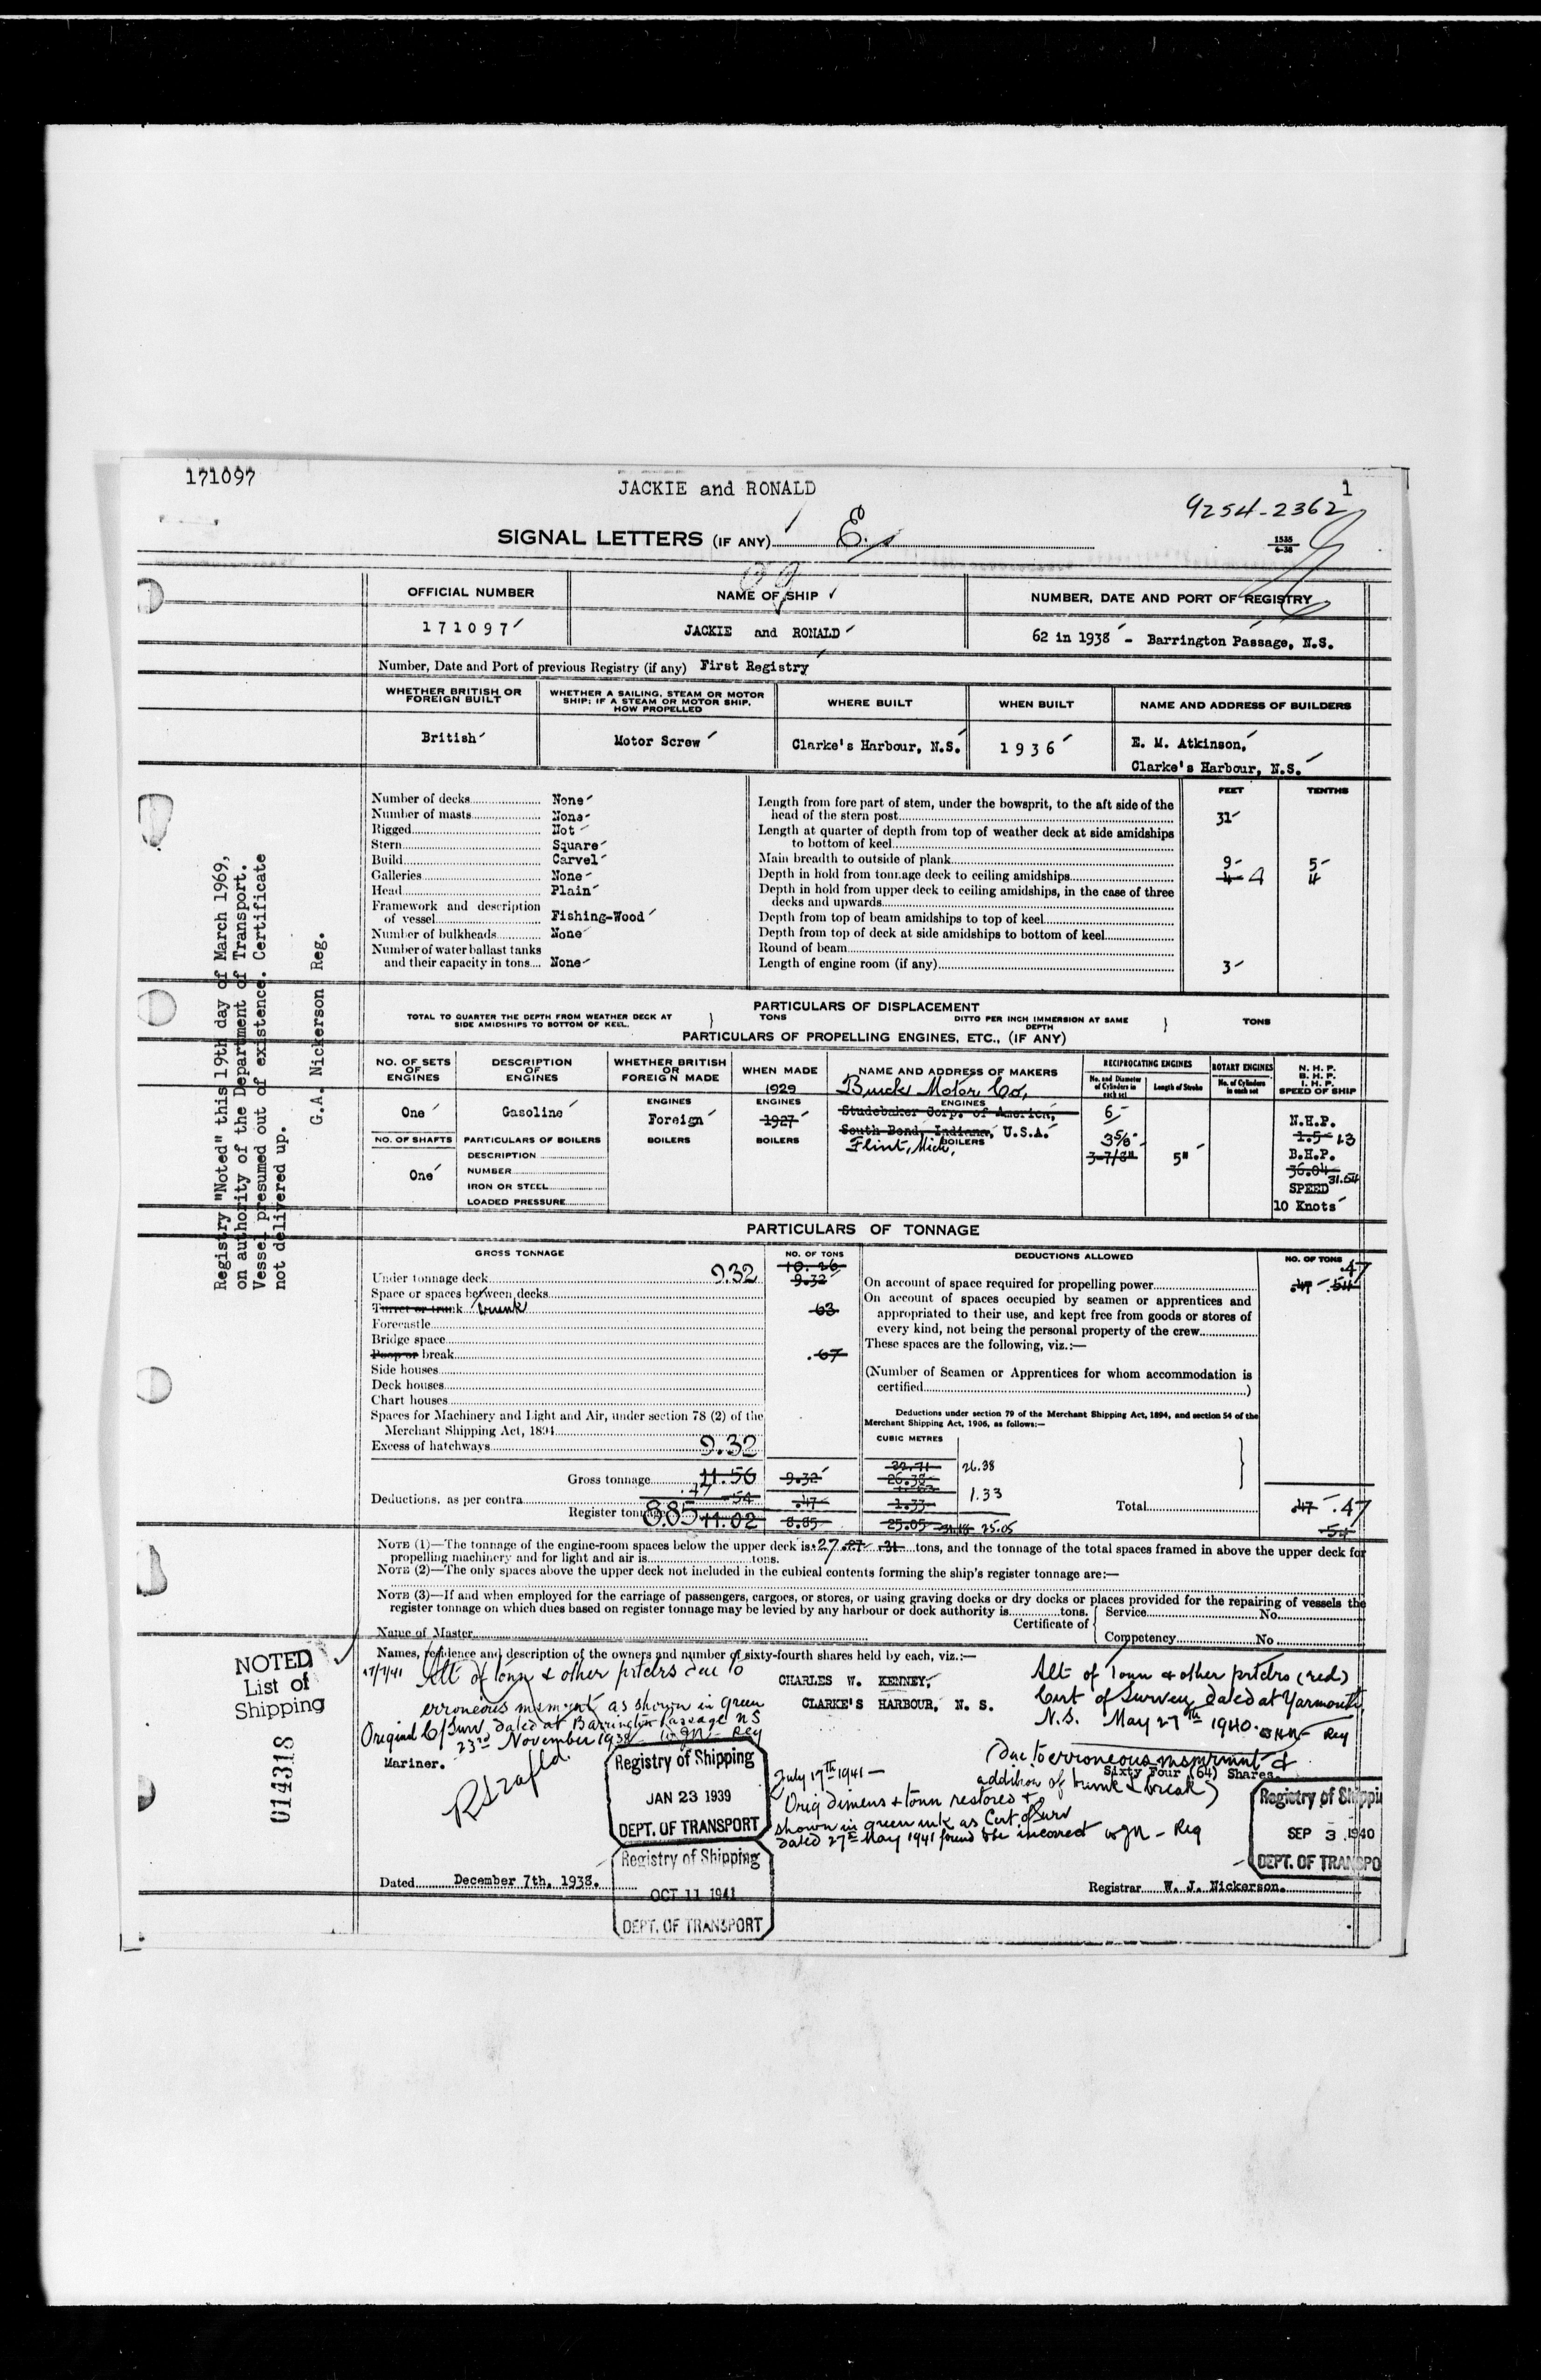 171097
JACKIE and RONALD
1
9254-2362
SIGNAL LETTERS (IF ANY) E.
1535
6-38
OFFICIAL NUMBER
NAME OF SHIP
NUMBER, DATE AND PORT OF REGISTRY
171097
JACKIE and RONALD
62 in 1938 - Barrington Passage, N.S.
Number, Date and Port of previous Registry (if any) First Registry
WHETHER BRITISH OR FOREIGN BUILT
WHETHER A SAILING, STEAM OR MOTOR SHIP; IF A STEAM OR MOTOR SHIP, HOW PROPELLED
WHERE BUILT
WHEN BUILT
NAME AND ADDRESS OF BUILDERS
British
Motor Screw
Clarke's Harbour, N.S.
1936
E. M. Atkinson,
Clarke's Harbour, N.S.
FEET
TENTHS
Number of decks None
Number of masts None
Rigged Not
Stern Square
Build Carvel
Galleries None
Head Plain
Framework and description
of vessel Fishing-Wood
Number of bulkheads None
Number of water ballast tanks
and their capacity in tons None
Length from fore part of stem, under the bowsprit, to the aft side of the
head of the stern post 31
Length at quarter of depth from top of weather deck at side amidships
to bottom of keel
Main breadth to outside of plank 9 5
Depth in hold from tonnage deck to ceiling amidships 4 4 4
Depth in hold from upper deck to ceiling amidships, in the case of three
decks and upwards
Depth from top of beam amidships to top of keel
Depth from top of deck at side amidships to bottom of keel
Round of beam
Length of engine room (if any) 3
PARTICULARS OF DISPLACEMENT
TOTAL TO QUARTER THE DEPTH FROM WEATHER DECK AT SIDE AMIDSHIPS TO BOTTOM OF KEEL.
TONS
DITTO PER INCH IMMERSION AT SAME DEPTH
TONS
PARTICULARS OF PROPELLING ENGINES, ETC., (IF ANY)
NO. OF SETS OF ENGINES
DESCRIPTION OF ENGINES
WHETHER BRITISH OR FOREIGN MADE
WHEN MADE
NAME AND ADDRESS OF MAKERS
RECIPROCATING ENGINES
No. and Diameter of Cylinders in each set
Length of Stroke
ROTARY ENGINES
No. of Cylinders in each set
N. H. P.
B. H. P.
I. H. P.
SPEED OF SHIP
One
Gasoline
ENGINES
Foreign
1929
ENGINES
1927
Buick Motor Co,
ENGINES
Studebaker Corp. of America,
South Bend, Indiana, U.S.A.
Flint, Mich,
6
3 5/16
3-7/8"
5"
N.H.P.
1.5 1.3
B.H.P.
36.04 31.54
SPEED
10 Knots
NO. OF SHAFTS
One
PARTICULARS OF BOILERS
DESCRIPTION
NUMBER
IRON OR STEEL
LOADED PRESSURE
BOILERS
BOILERS
BOILERS
PARTICULARS OF TONNAGE
GROSS TONNAGE
NO. OF TONS
DEDUCTIONS ALLOWED
NO. OF TONS
10.26
Under tonnage deck 9.32 9.32
Space or spaces between decks
Turret or trunk trunk 63
Forecastle
Bridge space
Poop or break .67
Side houses
Deck houses
Chart houses
Spaces for Machinery and Light and Air, under section 78 (2) of the
Merchant Shipping Act, 1894
Excess of hatchways 9.32
Gross tonnage 11.56 9.32
Deductions, as per contra .47 54 .47
Register tonnage 8.85 11.02 8.85
On account of space required for propelling power .47 .54 .47
On account of spaces occupied by seamen or apprentices and
appropriated to their use, and kept free from goods or stores of
every kind, not being the personal property of the crew
These spaces are the following, viz.:—
(Number of Seamen or Apprentices for whom accommodation is
certified)
Deductions under section 79 of the Merchant Shipping Act, 1894, and section 54 of the
Merchant Shipping Act, 1906, as follows:—
CUBIC METRES
32.71
26.38 26.38
1.33 1.33
25.05 31.18 25.05
Total .47 .47
54
NOTE (1)—The tonnage of the engine-room spaces below the upper deck is .27 .27 .31 tons, and the tonnage of the total spaces framed in above the upper deck for
propelling machinery and for light and air is tons.
NOTE (2)—The only spaces above the upper deck not included in the cubical contents forming the ship's register tonnage are:—
NOTE (3)—If and when employed for the carriage of passengers, cargoes, or stores, or using graving docks or dry docks or places provided for the repairing of vessels the
register tonnage on which dues based on register tonnage may be levied by any harbour or dock authority is tons.
Certificate of
Service No.
Competency No
Name of Master
Names, residence and description of the owners and number of sixty-fourth shares held by each, viz.:—
17/7/41 Alt of tonn & other prtclrs due to
erroneous msmrmt as shown in green
Original C/Surv dated at Barrington Passage NS
23rd November 1938 - Reg
Mariner.
CHARLES W. KENNEY,
CLARKE'S HARBOUR, N. S.
Alt of Tonn & other prtclrs (red)
Cert of Survey dated at Yarmouth,
N.S. May 27th 1940. Reg
(due to erroneous msmrmnt &
Sixty Four (64) Shares.
addition of trunk & break)
July 17th 1941 —
Orig dimens & tonn restored &
shown in green ink as Cert. of Surv
dated 27th May 1941 found to be incorrect wjn - Reg
Registry of Shipping
JAN 23 1939
DEPT. OF TRANSPORT
Registry of Shipping
OCT 11 1941
DEPT. OF TRANSPORT
Registry of Shippi
SEP 3 1940
DEPT. OF TRANSPO
Dated December 7th, 1938.
Registrar W. J. Nickerson.
Registry "Noted" this 19th day of March 1969,
on authority of the Department of Transport.
Vessel presumed out of existence. Certificate
not delivered up.
G.A. Nickerson Reg.
NOTED
List of
Shipping
014318